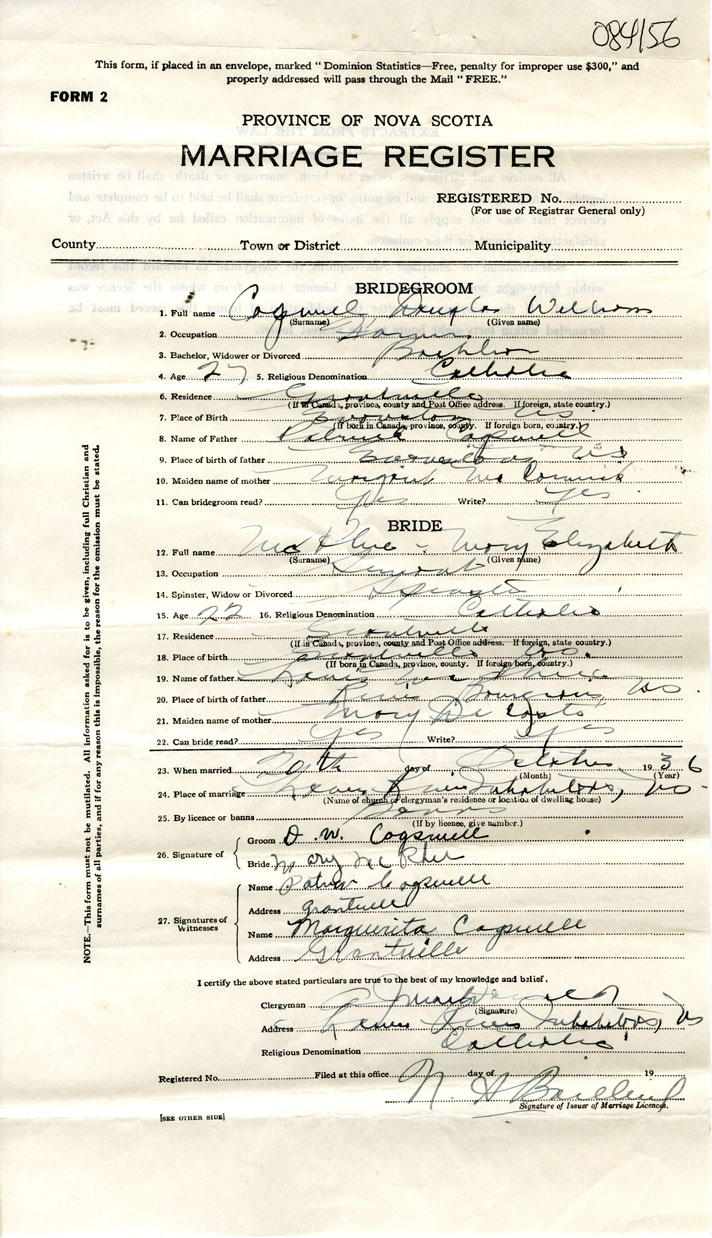 084156
This form, if placed in an envelope, marked "Dominion Statistics—Free, penalty for improper use $300," and
properly addressed will pass through the Mail "FREE."
FORM 2
PROVINCE OF NOVA SCOTIA
MARRIAGE REGISTER
REGISTERED No.
(For use of Registrar General only)
County Town or District Municipality
BRIDEGROOM
1. Full name Cogswell Douglas William
(Surname) (Given name)
2. Occupation
3. Bachelor, Widower or Divorced Bachelor
4. Age 27 5. Religious Denomination Catholic
6. Residence Grantville
(If in Canada, province, county and Post Office address. If foreign, state country.)
7. Place of Birth
(If born in Canada, province, county. If foreign born, country.)
8. Name of Father Patrick Cogswell
9. Place of birth of father NS
10. Maiden name of mother Margaret
11. Can bridegroom read? Yes Write? Yes
BRIDE
12. Full name Mary Elizabeth
(Surname) (Given name)
13. Occupation Servant
14. Spinster, Widow or Divorced Spinster
15. Age 22 16. Religious Denomination Catholic
17. Residence Grantville
(If in Canada, province, county and Post Office address. If foreign, state country.)
18. Place of birth Grantville NS.
(If born in Canada, province, county. If foreign born, country.)
19. Name of father
20. Place of birth of father River Bourgeois, NS.
21. Maiden name of mother Mary
22. Can bride read? Yes Write? Yes
23. When married 20th day of October 1936
(Month) (Year)
24. Place of marriage Lower River Inhabitants, NS.
(Name of church or clergyman's residence or location of dwelling house)
25. By licence or banns Banns
(If by licence, give number.)
26. Signature of
Groom D. W. Cogswell
Bride Mary
27. Signatures of Witnesses
Name Patrick Cogswell
Address Grantville
Name Marguerita Cogswell
Address Grantville
I certify the above stated particulars are true to the best of my knowledge and belief.
Clergyman
(Signature)
Address Lower River Inhabitants, NS
Religious Denomination Catholic
Registered No. Filed at this office day of 19
N
Signature of Issuer of Marriage Licences.
[SEE OTHER SIDE]
NOTE.—This form must not be mutilated. All information asked for is to be given, including full Christian and
surnames of all parties, and if for any reason this is impossible, the reason for the omission must be stated.